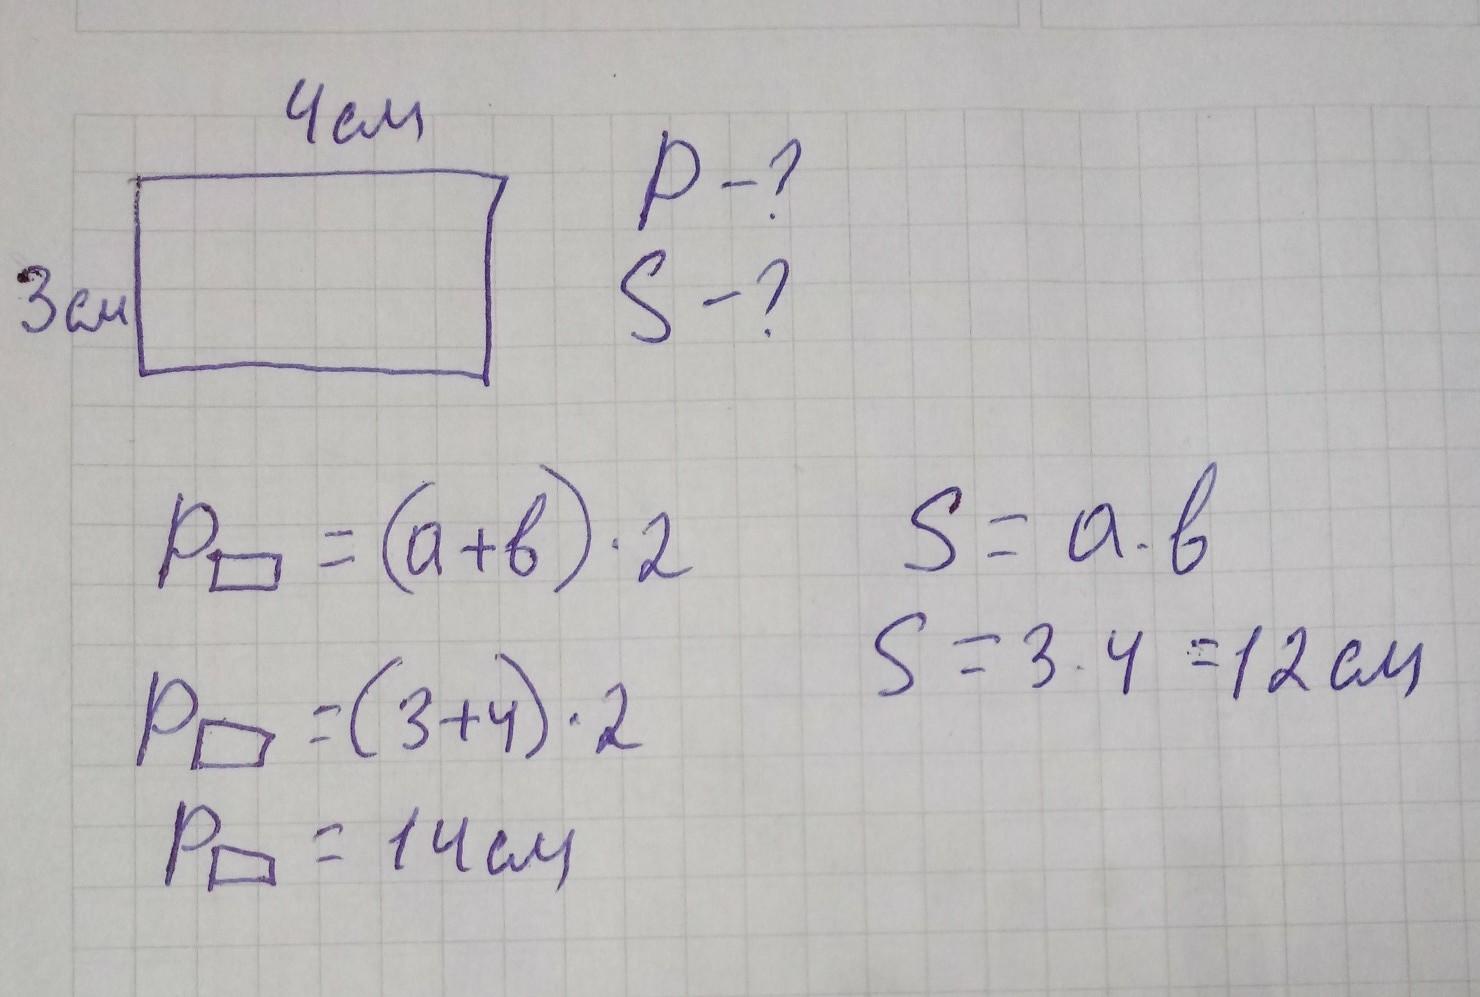 4см
3см
P-?
S-?
P▭ = (a+b)·2
P▭ = (3+4)·2
P▭ = 14см
S = a·b
S = 3·4 = 12см